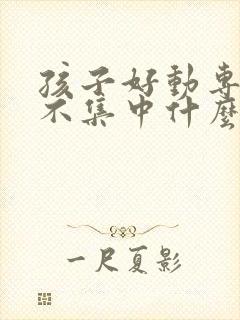 孩子好動專
不集中什麼
一尺夏影